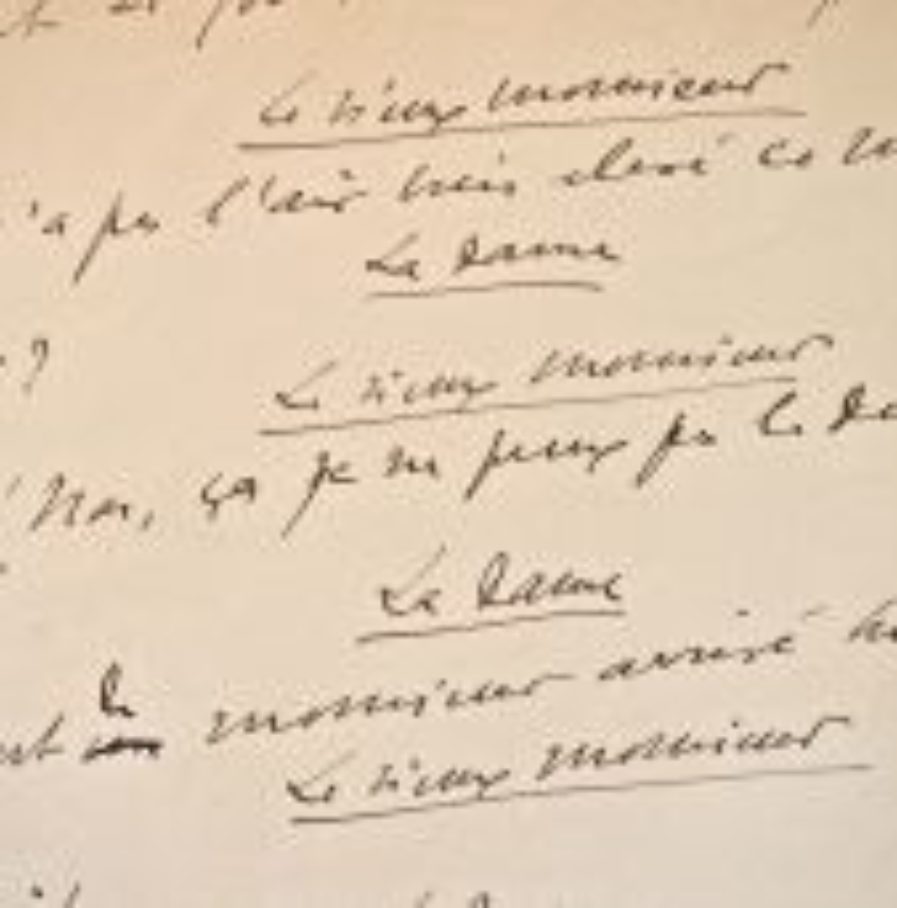 Le vieux monsieur
'a pas l'air bien élevé ce
La Dame
?
Le vieux monsieur
Non, ça je ne peux pas le
La Dame
le
monsieur arrivé
Le vieux monsieur